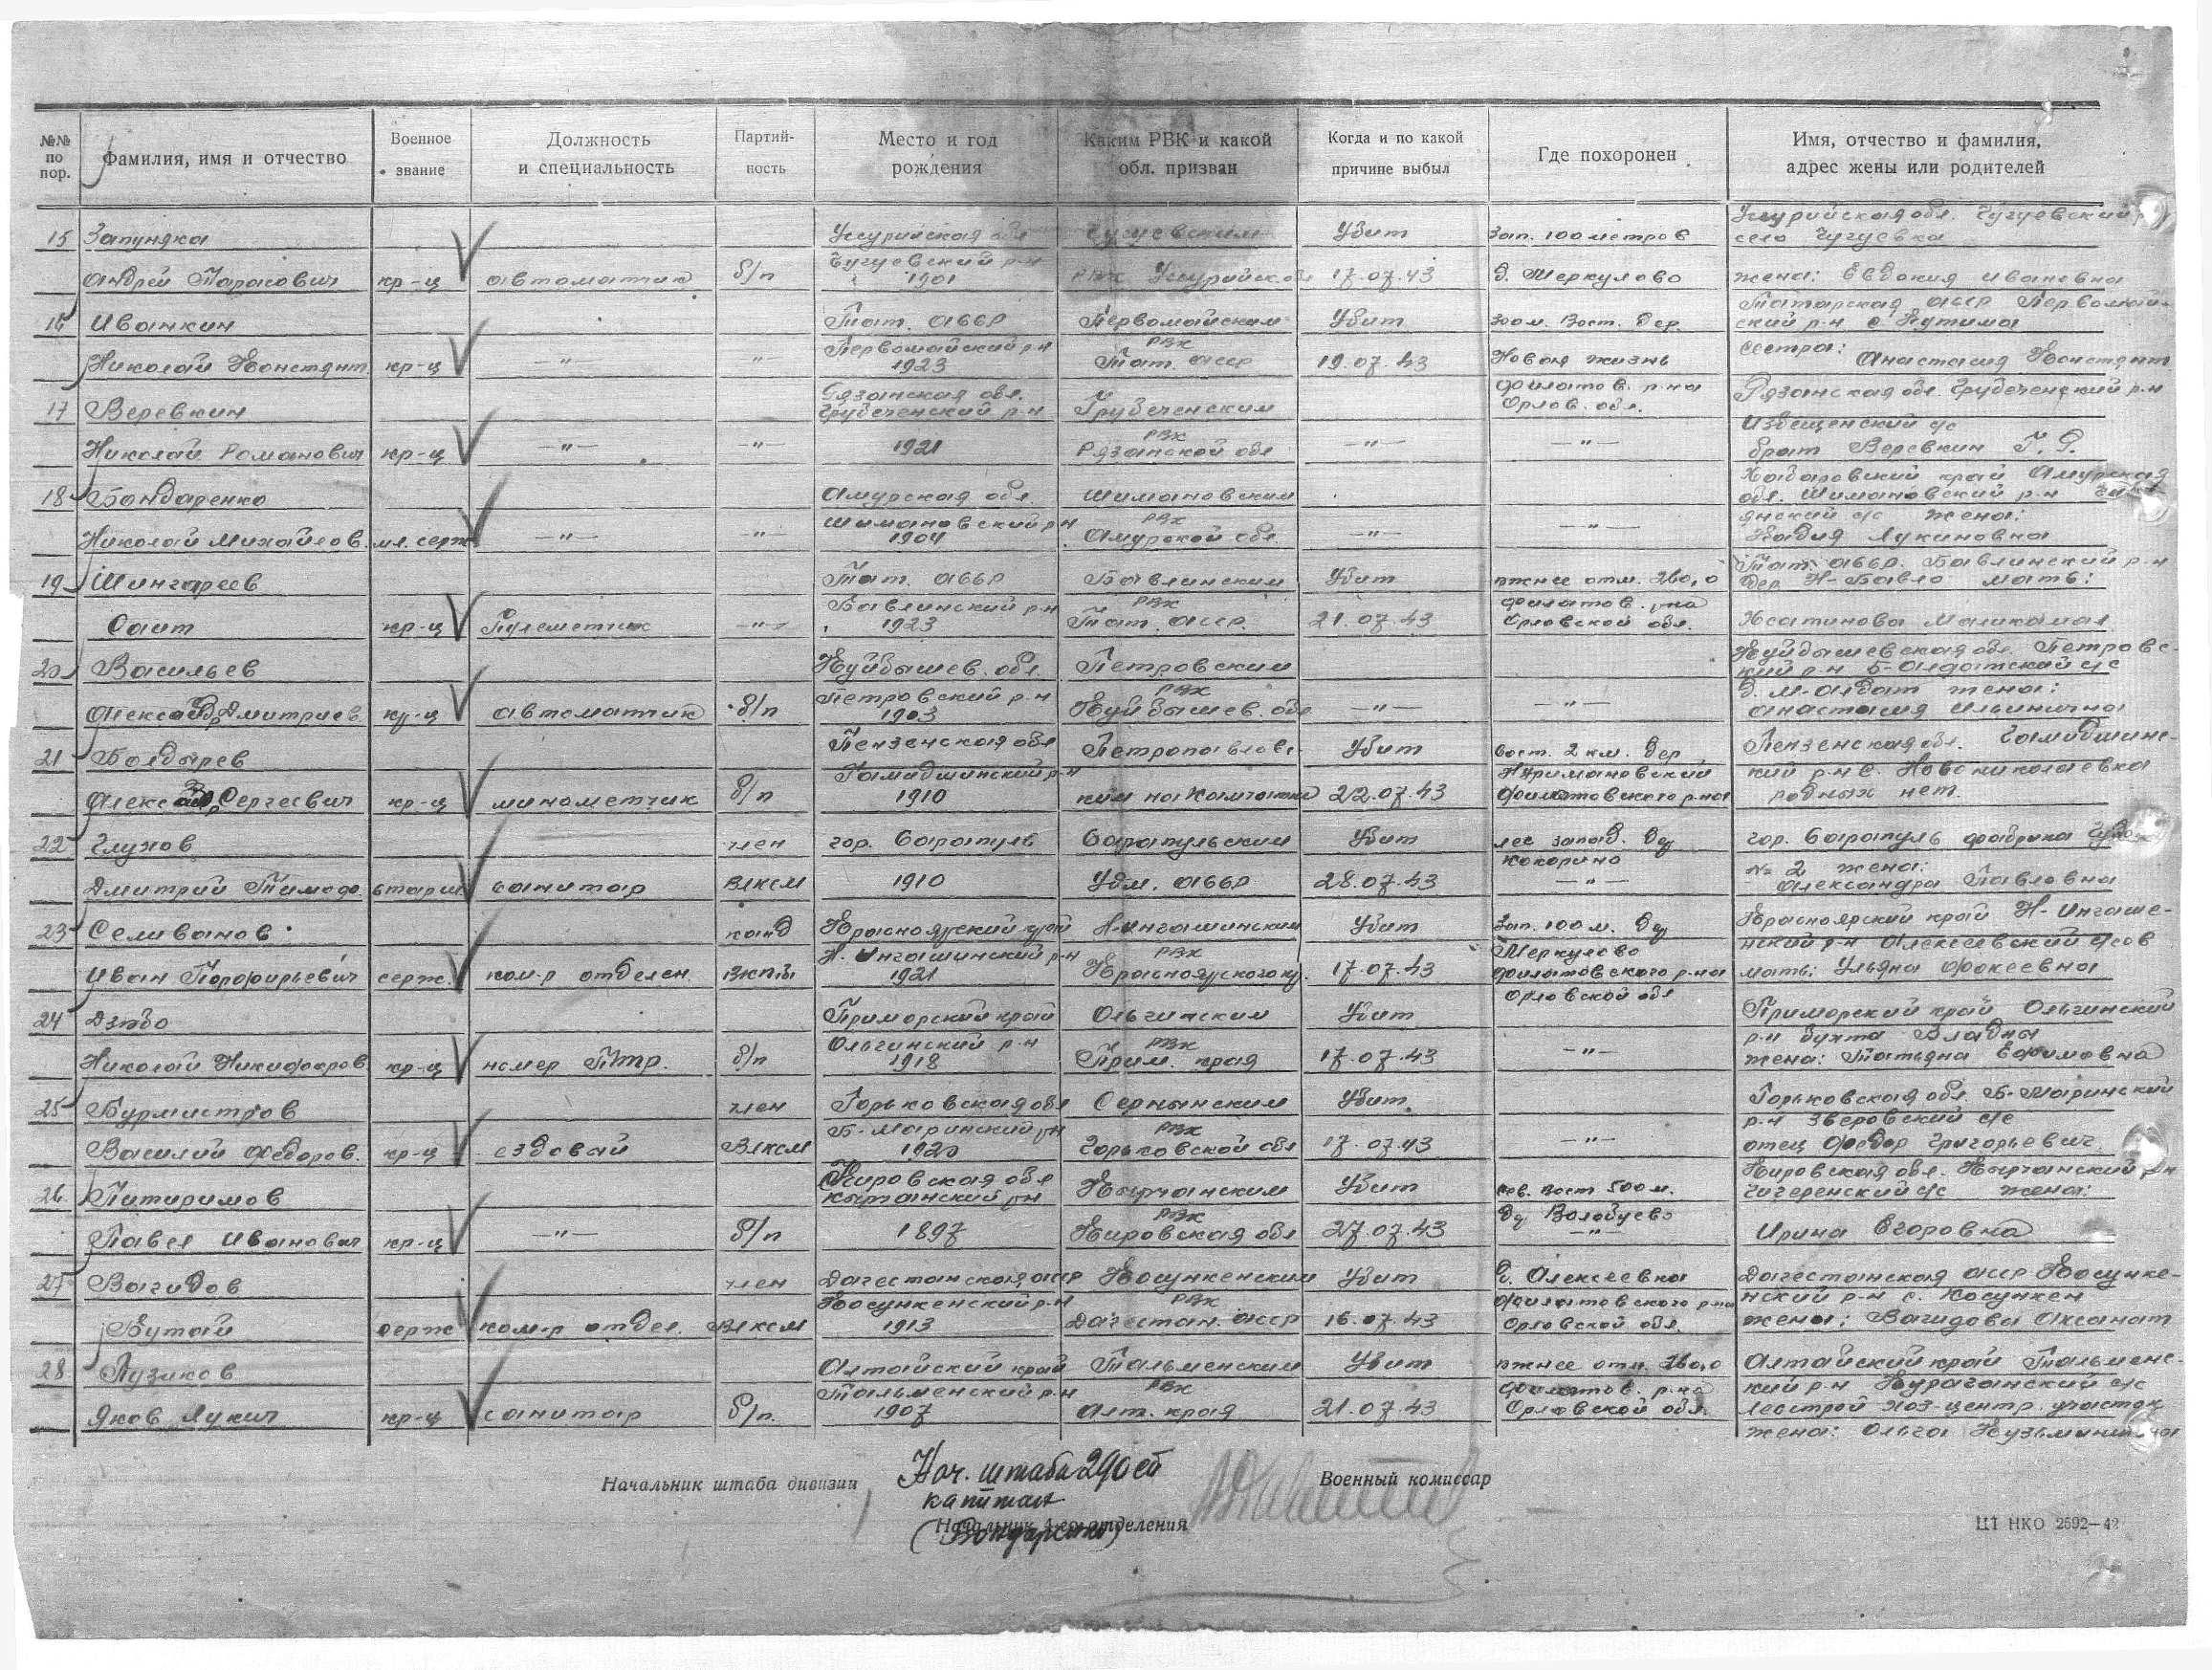 №№ по пор.
Фамилия, имя и отчество
Военное звание
Должность и специальность
Партийность
Место и год рождения
Каким РВК и какой обл. призван
Когда и по какой причине выбыл
Где похоронен
Имя, отчество и фамилия, адрес жены или родителей
15 Запуняка Уссурийская обл Чугуевским Убит Зап. 100 метров Уссурийская обл. Чугуевский
Чугуевский р-н село Чугуевка
Андрей Тарасович кр-ц автоматчик б/п 1901 РВК Уссурийск. 17.07.43 д. Меркулово жена: Евдокия Ивановна
16 Иванкин Тат. АССР Первомайским Убит Вост. дер. Татарская АССР Первомай-
Первомайский р-н РВК ский р-н с
Николай Констянт. кр-ц —"— —"— 1923 Тат. АССР 19.07.43 Новая жизнь сестра: Анастасия Констянт.
17 Веревкин Рязанская обл. Филатов. р-на Рязанская обл.
Орлов. обл.
Николай Романович кр-ц —"— —"— 1921 РВК Рязанской обл —"— —"— брат Веревкин Г. Р.
18 Бондаренко Амурская обл. Шимановским Хабаровский край Амурская
Шимановский р-н РВК обл. Шимановский р-н
с/с жена:
Николай Михайлов. мл. серж —"— —"— 1904 Амурской обл —"— —"— Лукиновна
19 Шингареев Тат. АССР Бавлинским Убит южнее отм. 260,0 Тат. АССР. Бавлинский р-н
Бавлинский р-н РВК Филатов. р-на дер. Н-Бавло мать:
Саит кр-ц Пулеметчик —"— 1923 Тат. АССР. 21.07.43 Орловской обл.
20 Васильев Куйбышев. обл. Петровским Куйбышевская обл. Петровс-
Петровский р-н РВК кий р-н Б-Алдатской с/с
д. М-Алдат жена:
Александр Дмитриев. кр-ц автоматчик б/п 1903 Куйбышев. обл —"— —"— Анастасия Ильинична
21 Болдырев Пензенская обл Петропавловс- Убит Вост. 2 км. дер Пензенская обл.
кий р-н с. Новониколаевка
Александр Сергеевич кр-ц минометчик б/п 1910 ким на Камчатке 22.07.43 Филатовского р-на родных нет.
22 Глухов член гор. Сарапуль Сарапульским Убит лес запад. гор. Сарапуль фабрика
Кокорино № 2 жена:
Дмитрий Тимофе. санитар ВЛКСМ 1910 Удм. АССР 28.07.43 —"— Александра Павловна
23 Селиванов канд Красноярский край Н-Ингашинским Убит Зап. 100 м. Красноярский край Н-Ингаше-
Н. Ингашинский р-н РВК Меркулово нский р-н Алексеевский с/сов
Иван Порфирьевич серж. ком-р отделен. ВКП/б 1921 Красноярского кр. 17.07.43 Филатовского р-на мать: Ульяна Фокеевна
Орловской обл
24 Приморский край Ольгинским Убит Приморский край Ольгинский
Ольгинский р-н РВК р-н бухта
Николай Никифоров. кр-ц номер ПТР. б/п 1918 Прим. края 17.07.43 —"— жена: Татьяна Ефимовна
25 Бурмистров член Горьковская обл Убит Горьковская обл. Б-Маринский
Б-Маринский р-н РВК р-н Зверовский с/с
Василий Федоров. кр-ц ездовай ВЛКСМ 1920 Горьковской обл 17.07.43 —"— отец Федор Григорьевич
26 Питиримов Кировская обл Кырчанским Убит сев. вост 500 м. Кировская обл. Кырчанский р-н
Кырчанский р-н РВК Волобуево с/с жена:
Павел Иванович кр-ц —"— б/п 1897 Кировская обл 27.07.43 —"— Ирина Егоровна
27 Вагидов член Дагестанская АССР Косункенским Убит д. Алексеевна Дагестанская АССР Косунке-
Косункенский р-н РВК Филатовского р-на нский р-н с. Косункен
Бутай серж ком-р отдел. ВЛКСМ 1913 Дагестан. АССР 16.07.43 Орловской обл. жена: Вагидова Аксанат
28 Пузиков Алтайский край Тальменским Убит южнее отм. 260,0 Алтайский край Тальменс-
Тальменский р-н РВК Филатов. р-на кий р-н с/с
Яков Лукич кр-ц санитар б/п. 1907 Алт. края 21.07.43 Орловской обл. участок
жена: Ольга Кузьминична
Начальник штаба дивизии
Нач. штаба 290 сд
капитан
Военный комиссар
Начальник 4-го отделения
(Бондаренко)
ЦТ НКО 2692—42